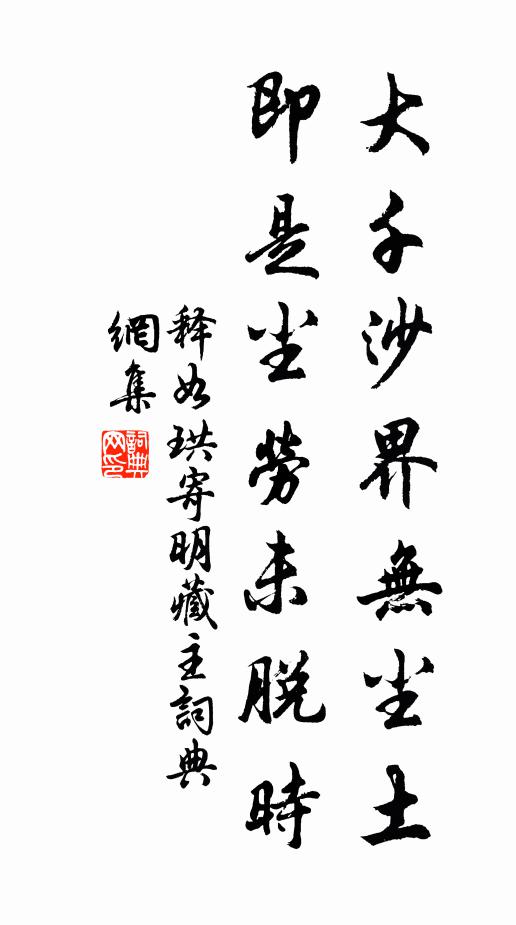 大千沙界無尘土
即是尘勞未脱時
释如珙寄明藏主詞典
網集
詞典网印